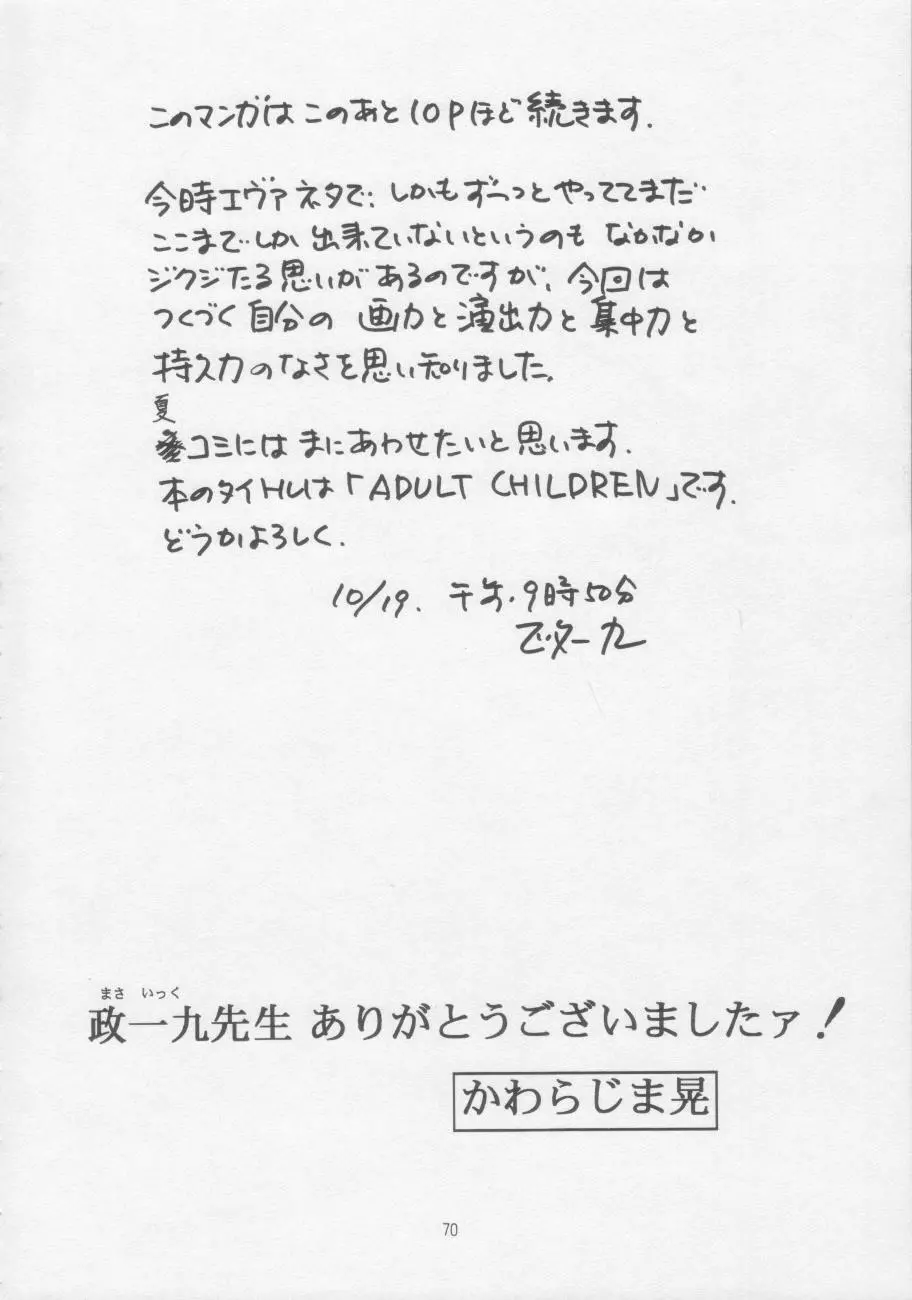 このマンガはこのあと10Pほど続きます.
今時エヴァネタで、しかもずーっとやっててまだ
ここまでしか出来ていないというのもなかなか
ジクジたる思いがあるのですが、今回は
つくづく自分の画力と演出力と集中力と
持久力のなさを思い知りました。
夏
コミにはまにあわせたいと思います.
本のタイトルは「ADULT CHILDREN」です.
どうかよろしく.
10/19. 午.9時50分
政一九
まさ いっく
政一九先生 ありがとうございましたァ!
かわらじま晃
70